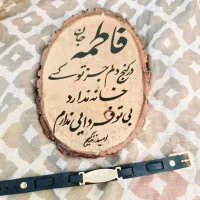 فاطمه جان
در کنج دلم جز تو کسے
خانه ندارد
بی تو فردایی ندارم